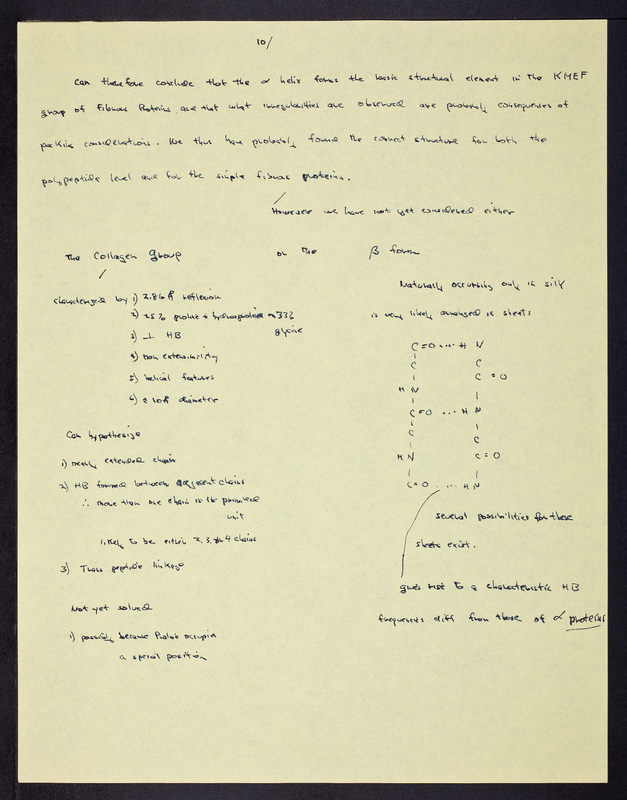 10/
Can therefore conclude that the α helix forms the basic structural element in the KMEF
group of Fibrous Proteins and that what irregularities are observed are probably consequences of
packing considerations. We thus have probably found the correct structure for both the
polypeptide level and for the simple fibrous proteins.
However we have not yet considered either
The Collagen Group or the β form
characterized by 1) 2.86 Å reflexion
2) 25% proline + hydroxyproline 33%
glycine
3) ⊥ HB
4) non extensibility
5) helical features
6) 10Å diameter
Can hypothesize
1) nearly extended chain
2) HB formed between adjacent chains
∴ more than one chain in the primitive
unit
likely to be either 2, 3, or 4 chains
3) Trans peptide linkage
Not yet solved
1) possibly because Proline occupies
a special position
Naturally occurring only in silk
is very likely arranged in sheets
C=O ... H N
C C
C=O
H N
C=O ... H N
C C
H N C=O
C=O ... H N
several possibilities for these
sheets exist.
gives rise to a characteristic HB
frequencies diff from those of α proteins